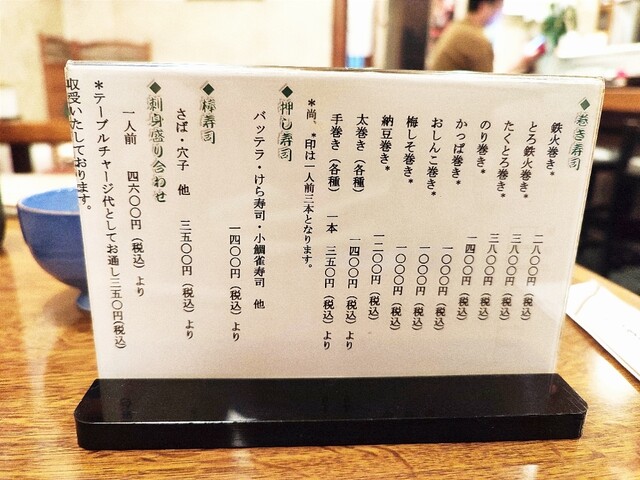 ◆巻き寿司
鉄火巻き* 二八〇〇円(税込)
とろ鉄火巻き* 三八〇〇円(税込)
たくとろ巻き* 三八〇〇円(税込)
のり巻き* 一四〇〇円(税込)
かっぱ巻き* 一〇〇〇円(税込)
おしんこ巻き* 一〇〇〇円(税込)
梅しそ巻き* 一〇〇〇円(税込)
納豆巻き* 一二〇〇円(税込)
太巻き(各種) 一四〇〇円(税込)より
手巻き(各種) 一本 三五〇円(税込)より
*尚、*印は一人前三本となります。
◆押し寿司
バッテラ・けら寿司・小鯛雀寿司 他
一四〇〇円(税込)より
◆棒寿司
さば・穴子 他 三五〇〇円(税込)より
◆刺身盛り合わせ
一人前 四六〇〇円(税込)より
*テーブルチャージ代としてお通し三五〇円(税込)
収受いたしております。